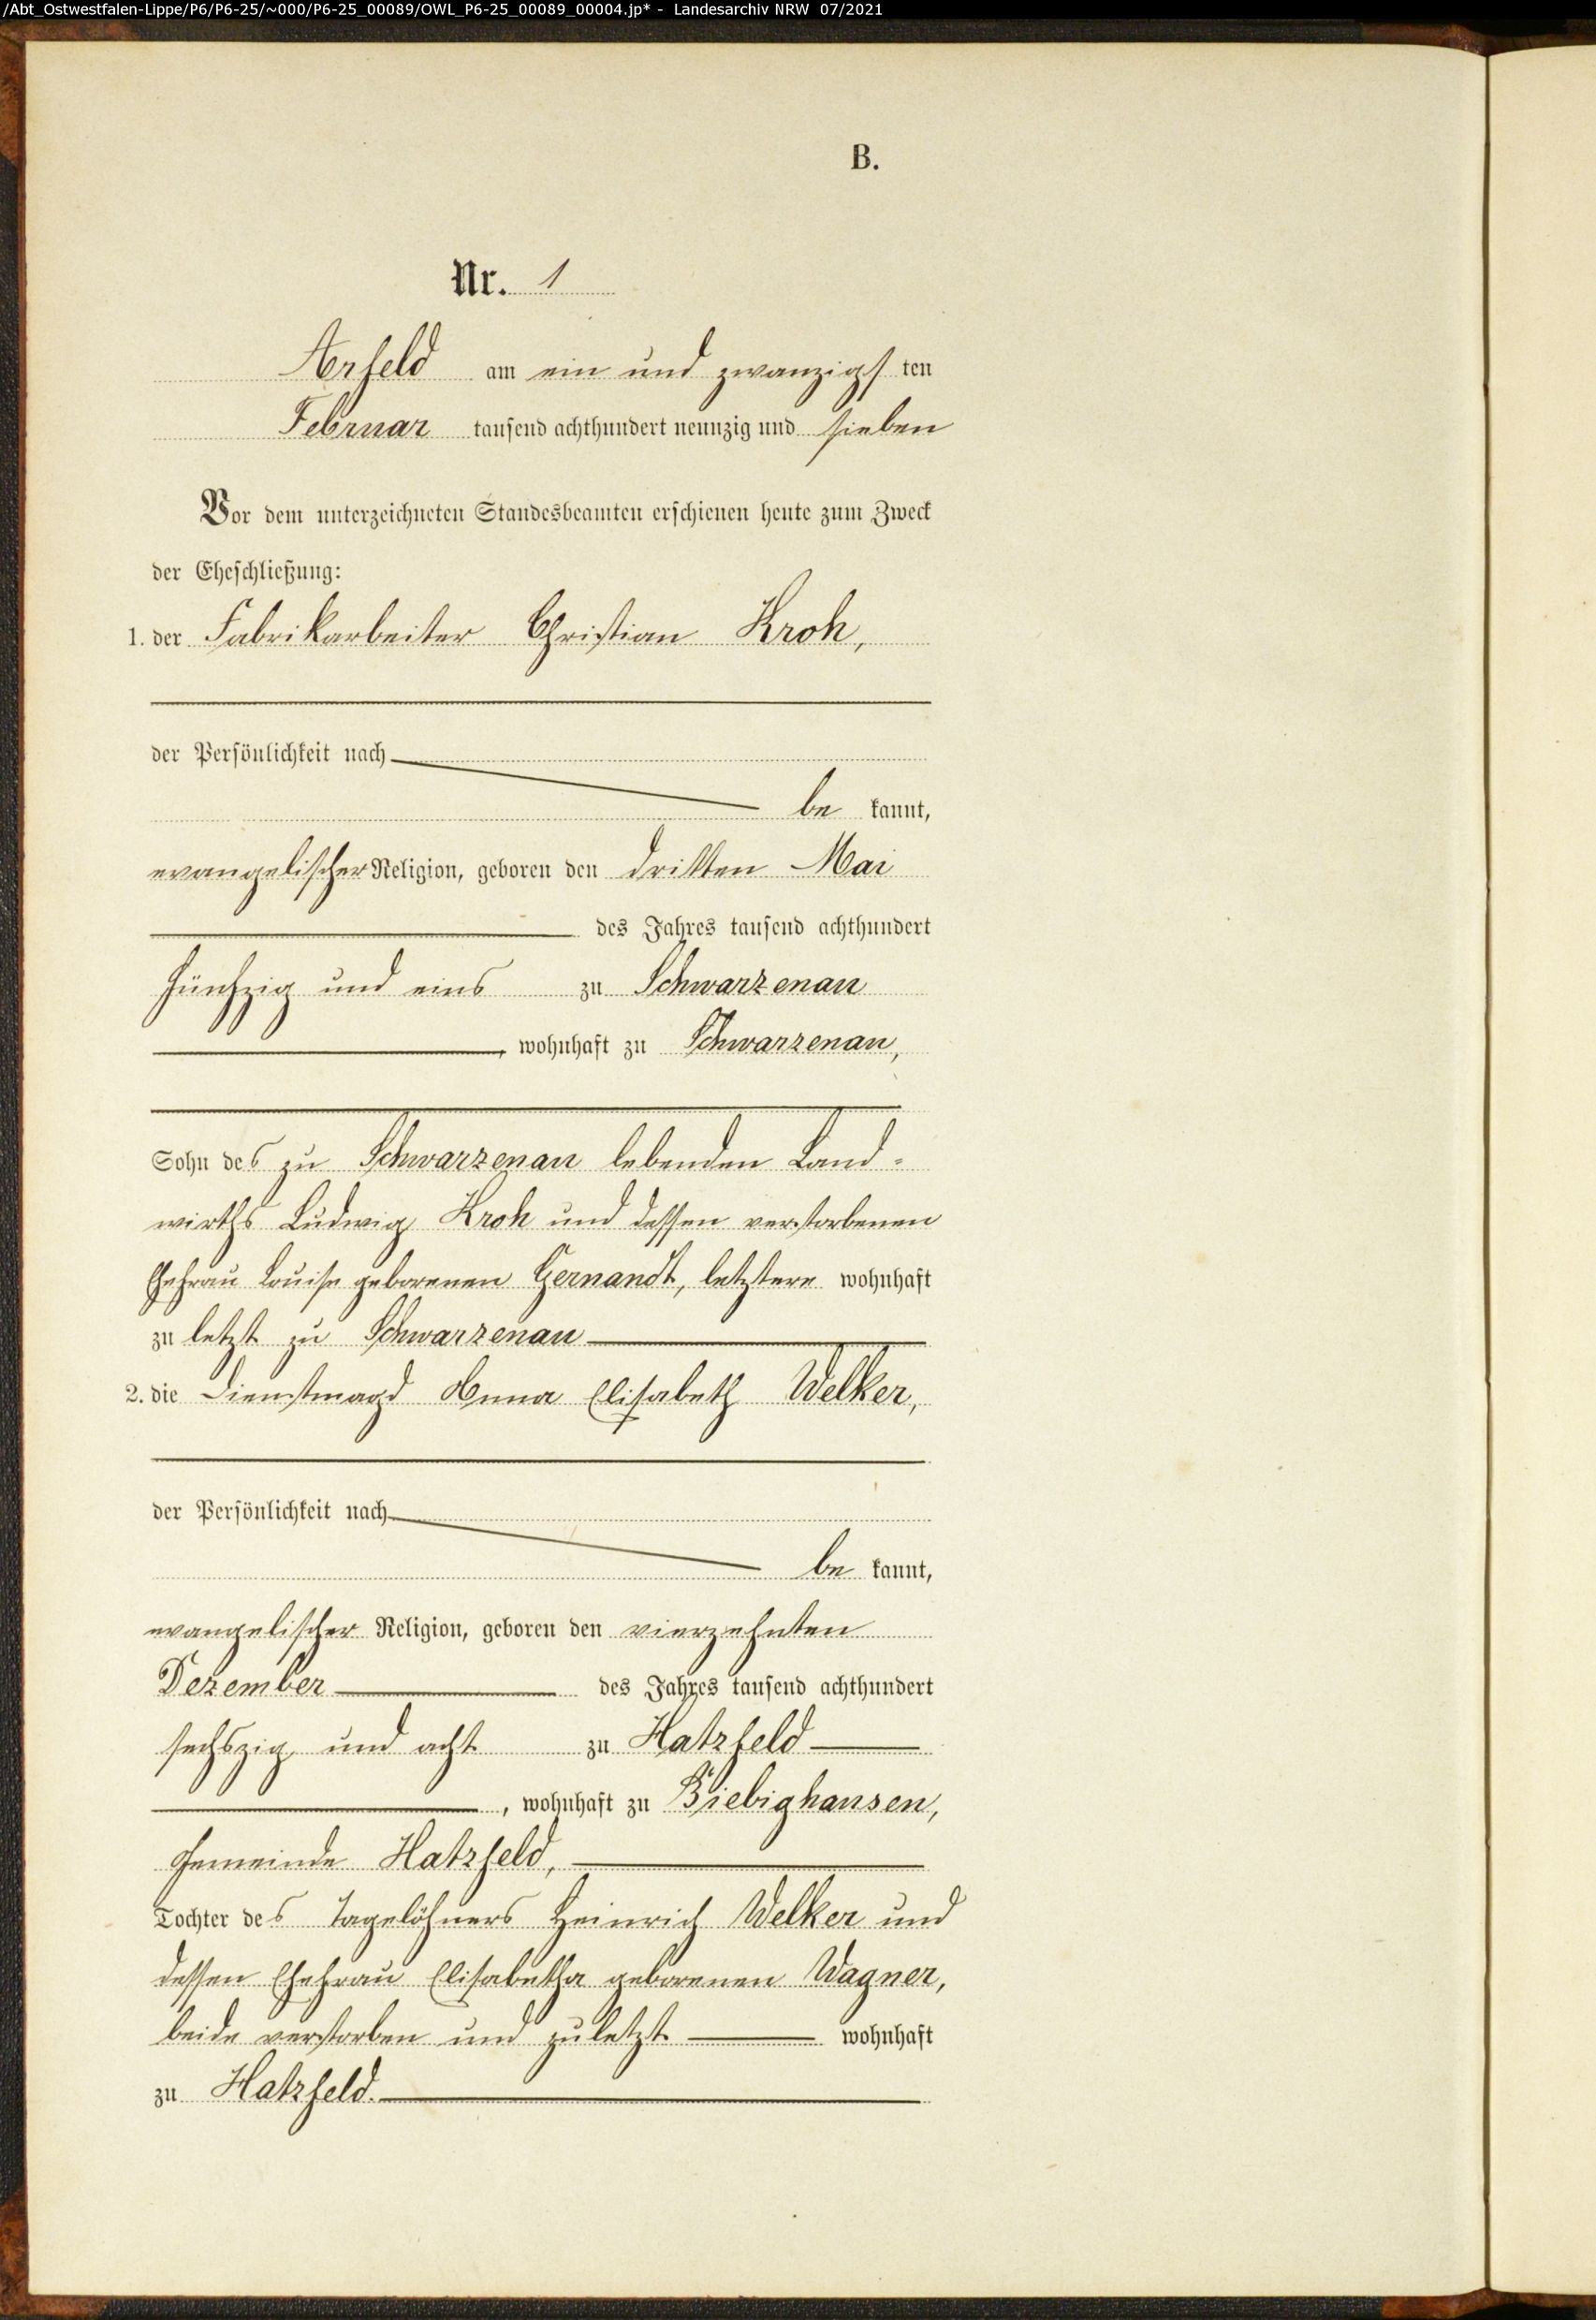 /Abt_Ostwestfalen-Lippe/P6/P6-25/~000/P6-25_00089/OWL_P6-25_00089_00004.jp* - Landesarchiv NRW 07/2021
B.
Nr. 1
Arfeld am ein und zwanzigsten
Februar tausend achthundert neunzig und sieben
Vor dem unterzeichneten Standesbeamten erschienen heute zum Zweck
der Eheschließung:
1. der Fabrikarbeiter Christian Kroh,
der Persönlichkeit nach
be kannt,
evangelischer Religion, geboren den dritten Mai
des Jahres tausend achthundert
fünfzig und eins zu Schwarzenau
, wohnhaft zu Schwarzenau,
Sohn des zu Schwarzenau lebenden Land-
wirths Ludwig Kroh und dessen verstorbenen
Ehefrau Louise geborenen Gernandt, letztere wohnhaft
zu letzt zu Schwarzenau
2. die Dienstmagd Anna Elisabeth Welker,
der Persönlichkeit nach
be kannt,
evangelischer Religion, geboren den vierzehnten
Dezember des Jahres tausend achthundert
sechszig und acht zu Hatzfeld
, wohnhaft zu Biebighausen,
Gemeinde Hatzfeld,
Tochter des Tagelöhners Heinrich Welker und
dessen Ehefrau Elisabetha geborenen Wagner,
beide verstorben und zuletzt wohnhaft
zu Hatzfeld.